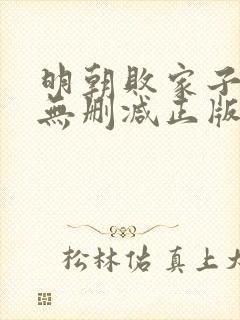 明朝敗家子
無删减正版
松林佑真上大